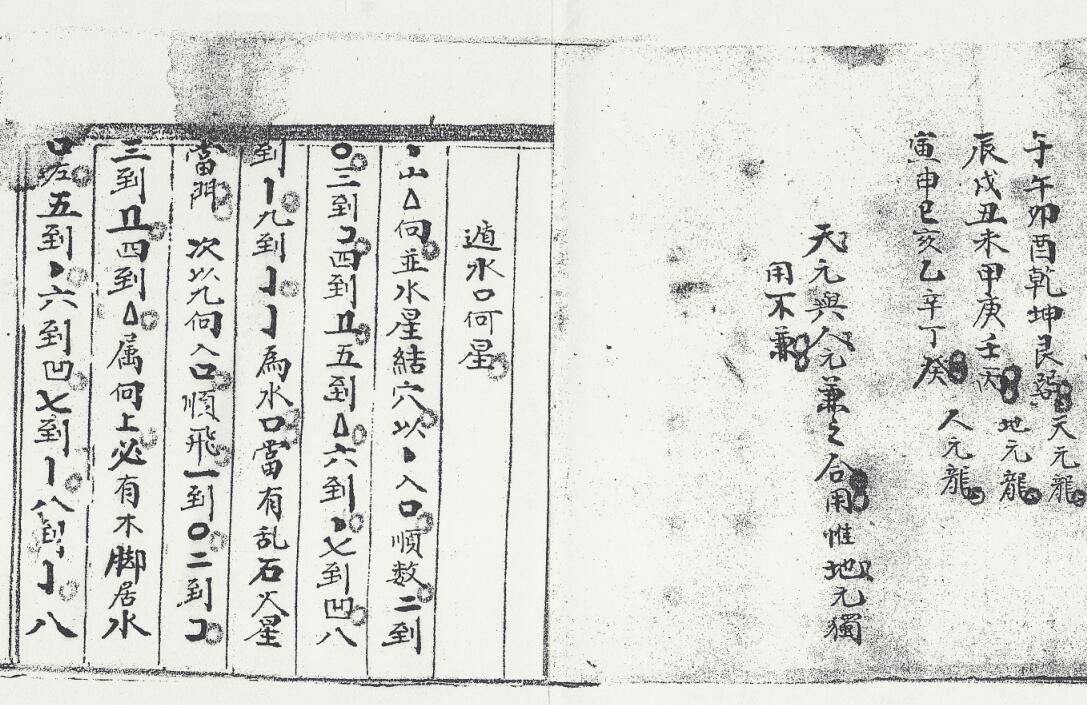 子午卯酉乾坤艮巽 天元龍
辰戌丑未甲庚壬丙 地元龍
寅申巳亥乙辛丁癸 人元龍
天元與人元兼之合用惟地元獨
用不兼
遁水口何星
丶山△向並水星結穴以丶入口順数二到
〇三到コ四到彐五到△六到丶七到凹八
到丨九到亅亅為水口當有乱石火星
當門 次以九向入口順飛一到〇二到コ
三到彐四到△属向上必有木脚居水
口左五到丶六到凹七到丨八到亅八